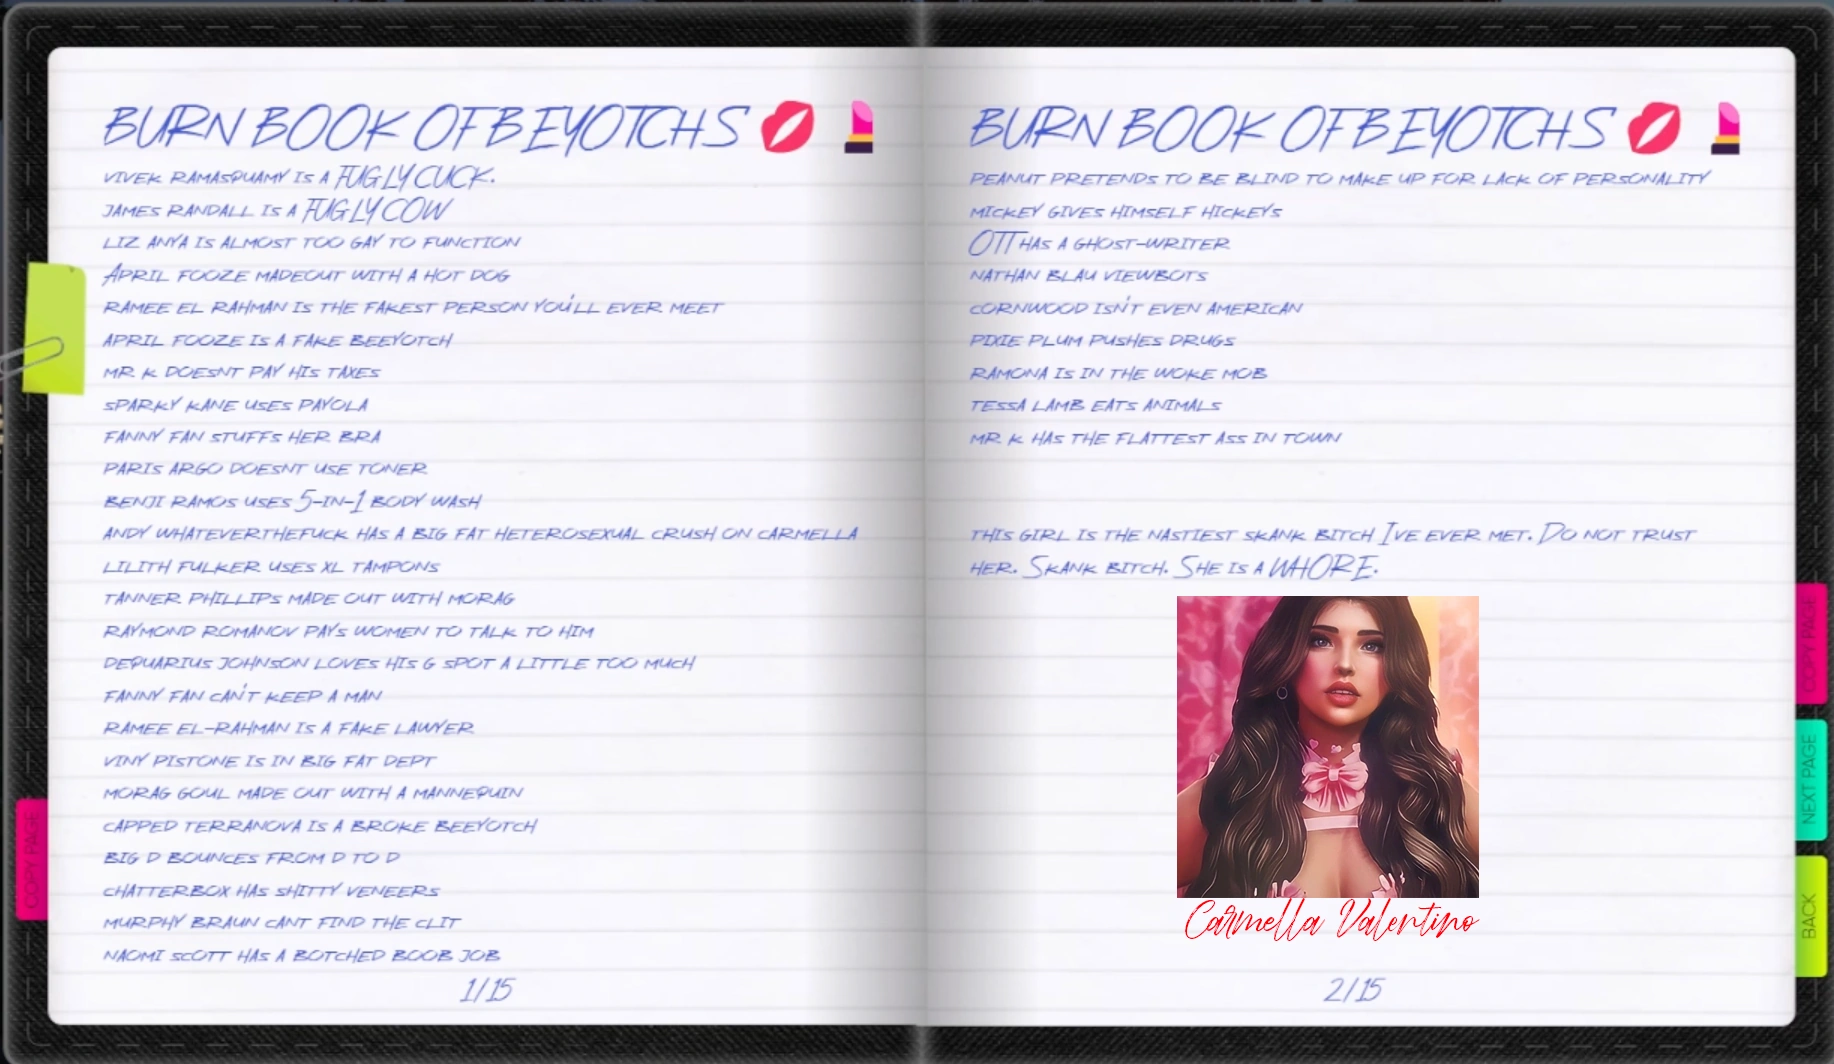 BURN BOOK OF BEYOTCHS 💋 💄
VIVEK RAMASQUAMY IS A FUGLY CUCK.
JAMES RANDALL IS A FUGLY COW
LIZ ANYA IS ALMOST TOO GAY TO FUNCTION
APRIL FOOZE MADEOUT WITH A HOT DOG
RAMEE EL RAHMAN IS THE FAKEST PERSON YOU'LL EVER MEET
APRIL FOOZE IS A FAKE BEEYOTCH
MR K DOESNT PAY HIS TAXES
SPARKY KANE USES PAYOLA
FANNY FAN STUFFS HER BRA
PARIS ARGO DOESNT USE TONER
BENJI RAMOS USES 5-IN-1 BODY WASH
ANDY WHATEVERTHEFUCK HAS A BIG FAT HETEROSEXUAL CRUSH ON CARMELLA
LILITH FULKER USES XL TAMPONS
TANNER PHILLIPS MADE OUT WITH MORAG
RAYMOND ROMANOV PAYS WOMEN TO TALK TO HIM
DEQUARIUS JOHNSON LOVES HIS G SPOT A LITTLE TOO MUCH
FANNY FAN CAN'T KEEP A MAN
RAMEE EL-RAHMAN IS A FAKE LAWYER
VINY PISTONE IS IN BIG FAT DEPT
MORAG GOUL MADE OUT WITH A MANNEQUIN
CAPPED TERRANOVA IS A BROKE BEEYOTCH
BIG D BOUNCES FROM D TO D
CHATTERBOX HAS SHITTY VENEERS
MURPHY BRAUN CANT FIND THE CLIT
NAOMI SCOTT HAS A BOTCHED BOOB JOB
1/15
COPY PAGE
BURN BOOK OF BEYOTCHS 💋 💄
PEANUT PRETENDS TO BE BLIND TO MAKE UP FOR LACK OF PERSONALITY
MICKEY GIVES HIMSELF HICKEYS
OTT HAS A GHOST-WRITER
NATHAN BLAU VIEWBOTS
CORNWOOD ISN'T EVEN AMERICAN
PIXIE PLUM PUSHES DRUGS
RAMONA IS IN THE WOKE MOB
TESSA LAMB EATS ANIMALS
MR K HAS THE FLATTEST ASS IN TOWN
THIS GIRL IS THE NASTIEST SKANK BITCH I'VE EVER MET. DO NOT TRUST
HER. SKANK BITCH. SHE IS A WHORE.
Carmella Valentino
2/15
COPY PAGE
NEXT PAGE
BACK